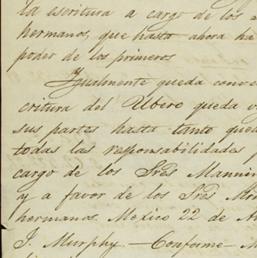 la escritura a cargo de los
hermanos, que hasta ahora ha
poder de los primeros
Igualmente queda conve
critura del Ubero queda v
sus partes hasta tanto que
todas las responsabilidades
cargo de los Sres Mannin
y a favor de los Sres
hermanos. Mexico 22 de
J. Murphy — Conforme — M